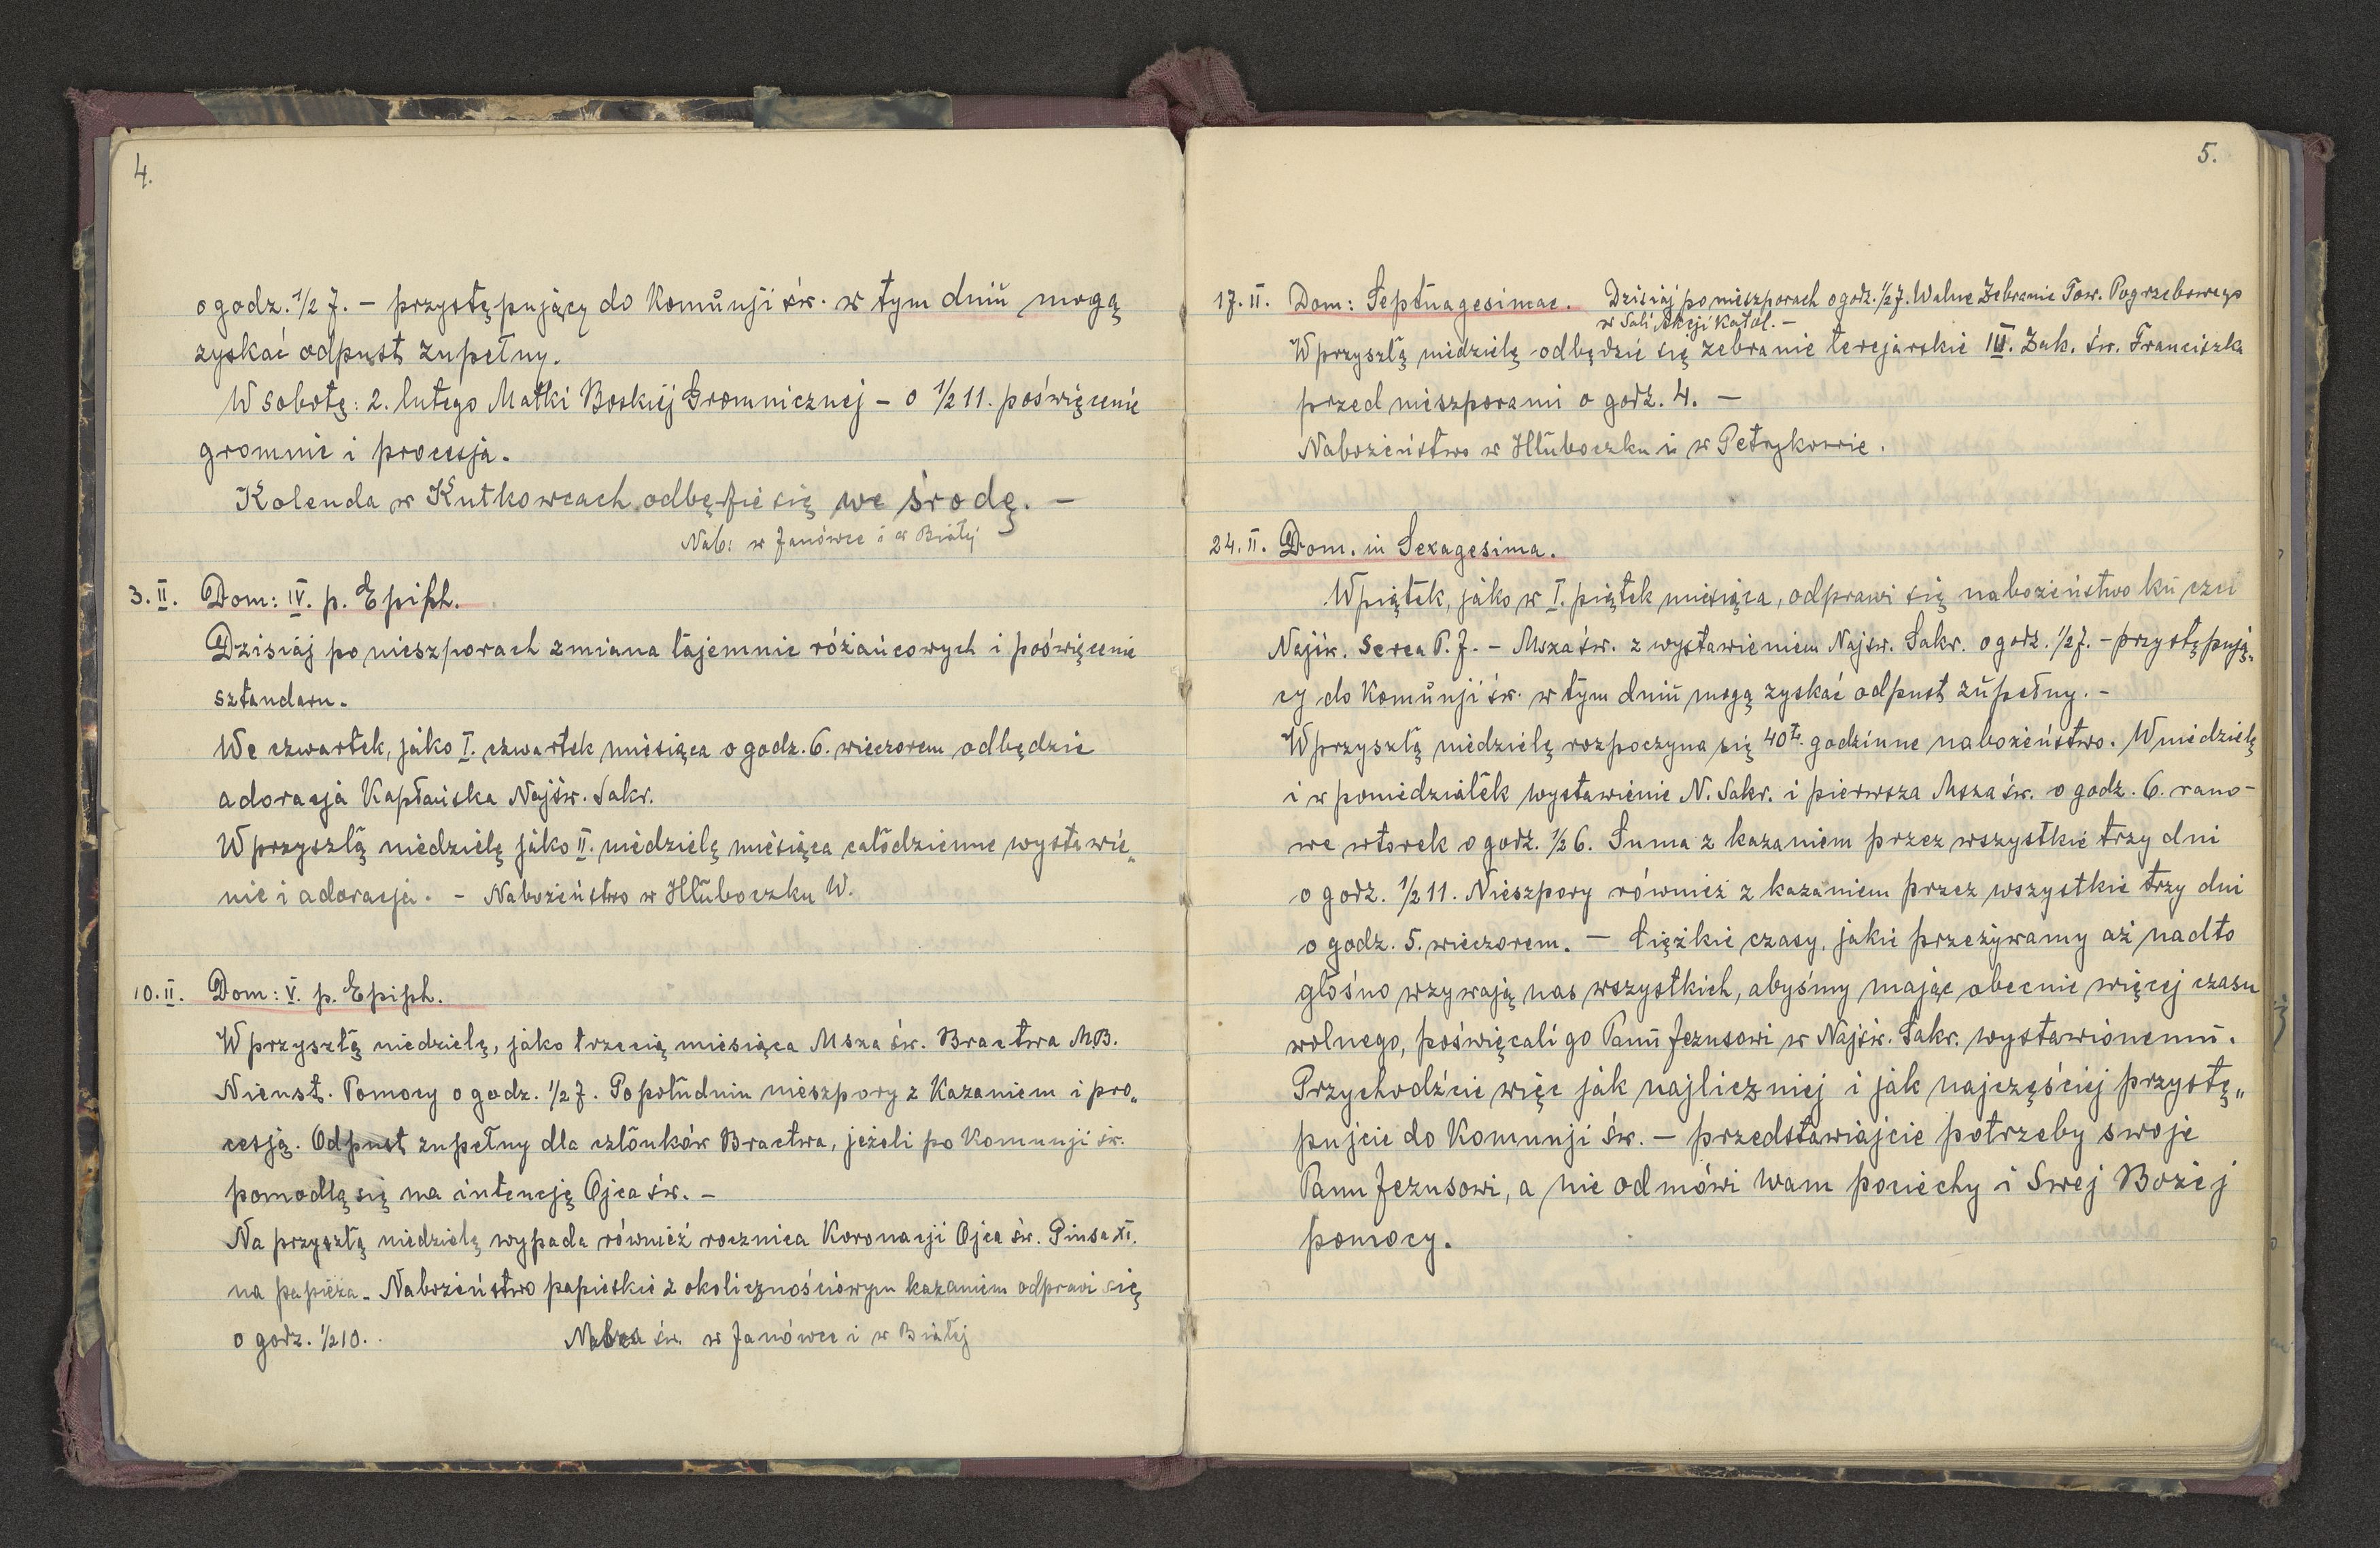 4.
o godz. 1/2 7. – przystępujący do Komunji św. w tym dniu mogą
zyskać odpust zupełny.
W sobotę: 2. lutego Matki Boskiej Gromnicznej – o 1/2 11. poświęcenie
gromnic i procesja.
Kolenda w Kutkowcach odbędzie się we środę. –
Nab: w Janówce i w Białej
3. II. Dom: IV. p. Epiph.
Dzisiaj po nieszporach zmiana tajemnic różańcowych i poświęcenie
sztandaru.
We czwartek, jako I. czwartek miesiąca o godz. 6. wieczorem odbędzie
adoracja Kapłańska Najśw. Sakr.
W przyszłą niedzielę jako II. niedzielę miesiąca całodzienne wystawie„
nie i adoracja. – Nabożeństwo w Hłuboczku W.
10. II. Dom: V. p. Epiph.
W przyszłą niedzielę, jako trzecią miesiąca Msza św. Bractwa MB.
Nieust. Pomocy o godz. 1/2 7. Popołudniu nieszpory z Kazaniem i pro„
cesją. Odpust zupełny dla członków Bractwa, jeżeli po Komunji św.
pomodlą się na intencję Ojca św. –
Na przyszłą niedzielę wypada również rocznica Koronacji Ojca św. Piusa XI.
na papieża. Nabożeństwo papieskie z okolicznościowym kazaniem odprawi się
o godz. 1/2 10.
św. w Janówce i w Białej
5.
17. II. Dom: Septuagesimae. Dzisiaj po nieszporach o godz. 1/2 7. Walne Zebranie Tow. Pogrzebowego
w Sali Akcji Katol. –
W przyszłą niedzielę odbędzie się zebranie tercjarskie III. Zak. św. Franciszka
przed nieszporami o godz. 4. –
Nabożeństwo w Hłuboczku i w Petrykowie.
24. II. Dom. in Sexagesima.
W piątek, jako w I. piątek miesiąca, odprawi się nabożeństwo ku czci
Najśw. Serca P. J. – Msza św. z wystawieniem Najśw. Sakr. o godz. 1/2 7. – przystępują„
cy do Komunji św. w tym dniu mogą zyskać odpust zupełny. –
W przyszłą niedzielę rozpoczyna się 40to. godzinne nabożeństwo. W niedzielę
i w poniedziałek wystawienie N. Sakr. i pierwsza Msza św. o godz. 6. rano –
we wtorek o godz. 1/2 6. Suma z kazaniem przez wszystkie trzy dni
o godz. 1/2 11. Nieszpory również z kazaniem przez wszystkie trzy dni
o godz. 5. wieczorem. – Ciężkie czasy, jakie przeżywamy aż nadto
głośno wzywają nas wszystkich, abyśmy mając obecnie więcej czasu
wolnego, poświęcali go Panu Jezusowi w Najśw. Sakr. wystawionemu.
Przychodźcie więc jak najliczniej i jak najczęściej przystę„
pujcie do Komunji św. – przedstawiajcie potrzeby swoje
Panu Jezusowi, a nie odmówi wam pociechy i Swej Bożej
pomocy.